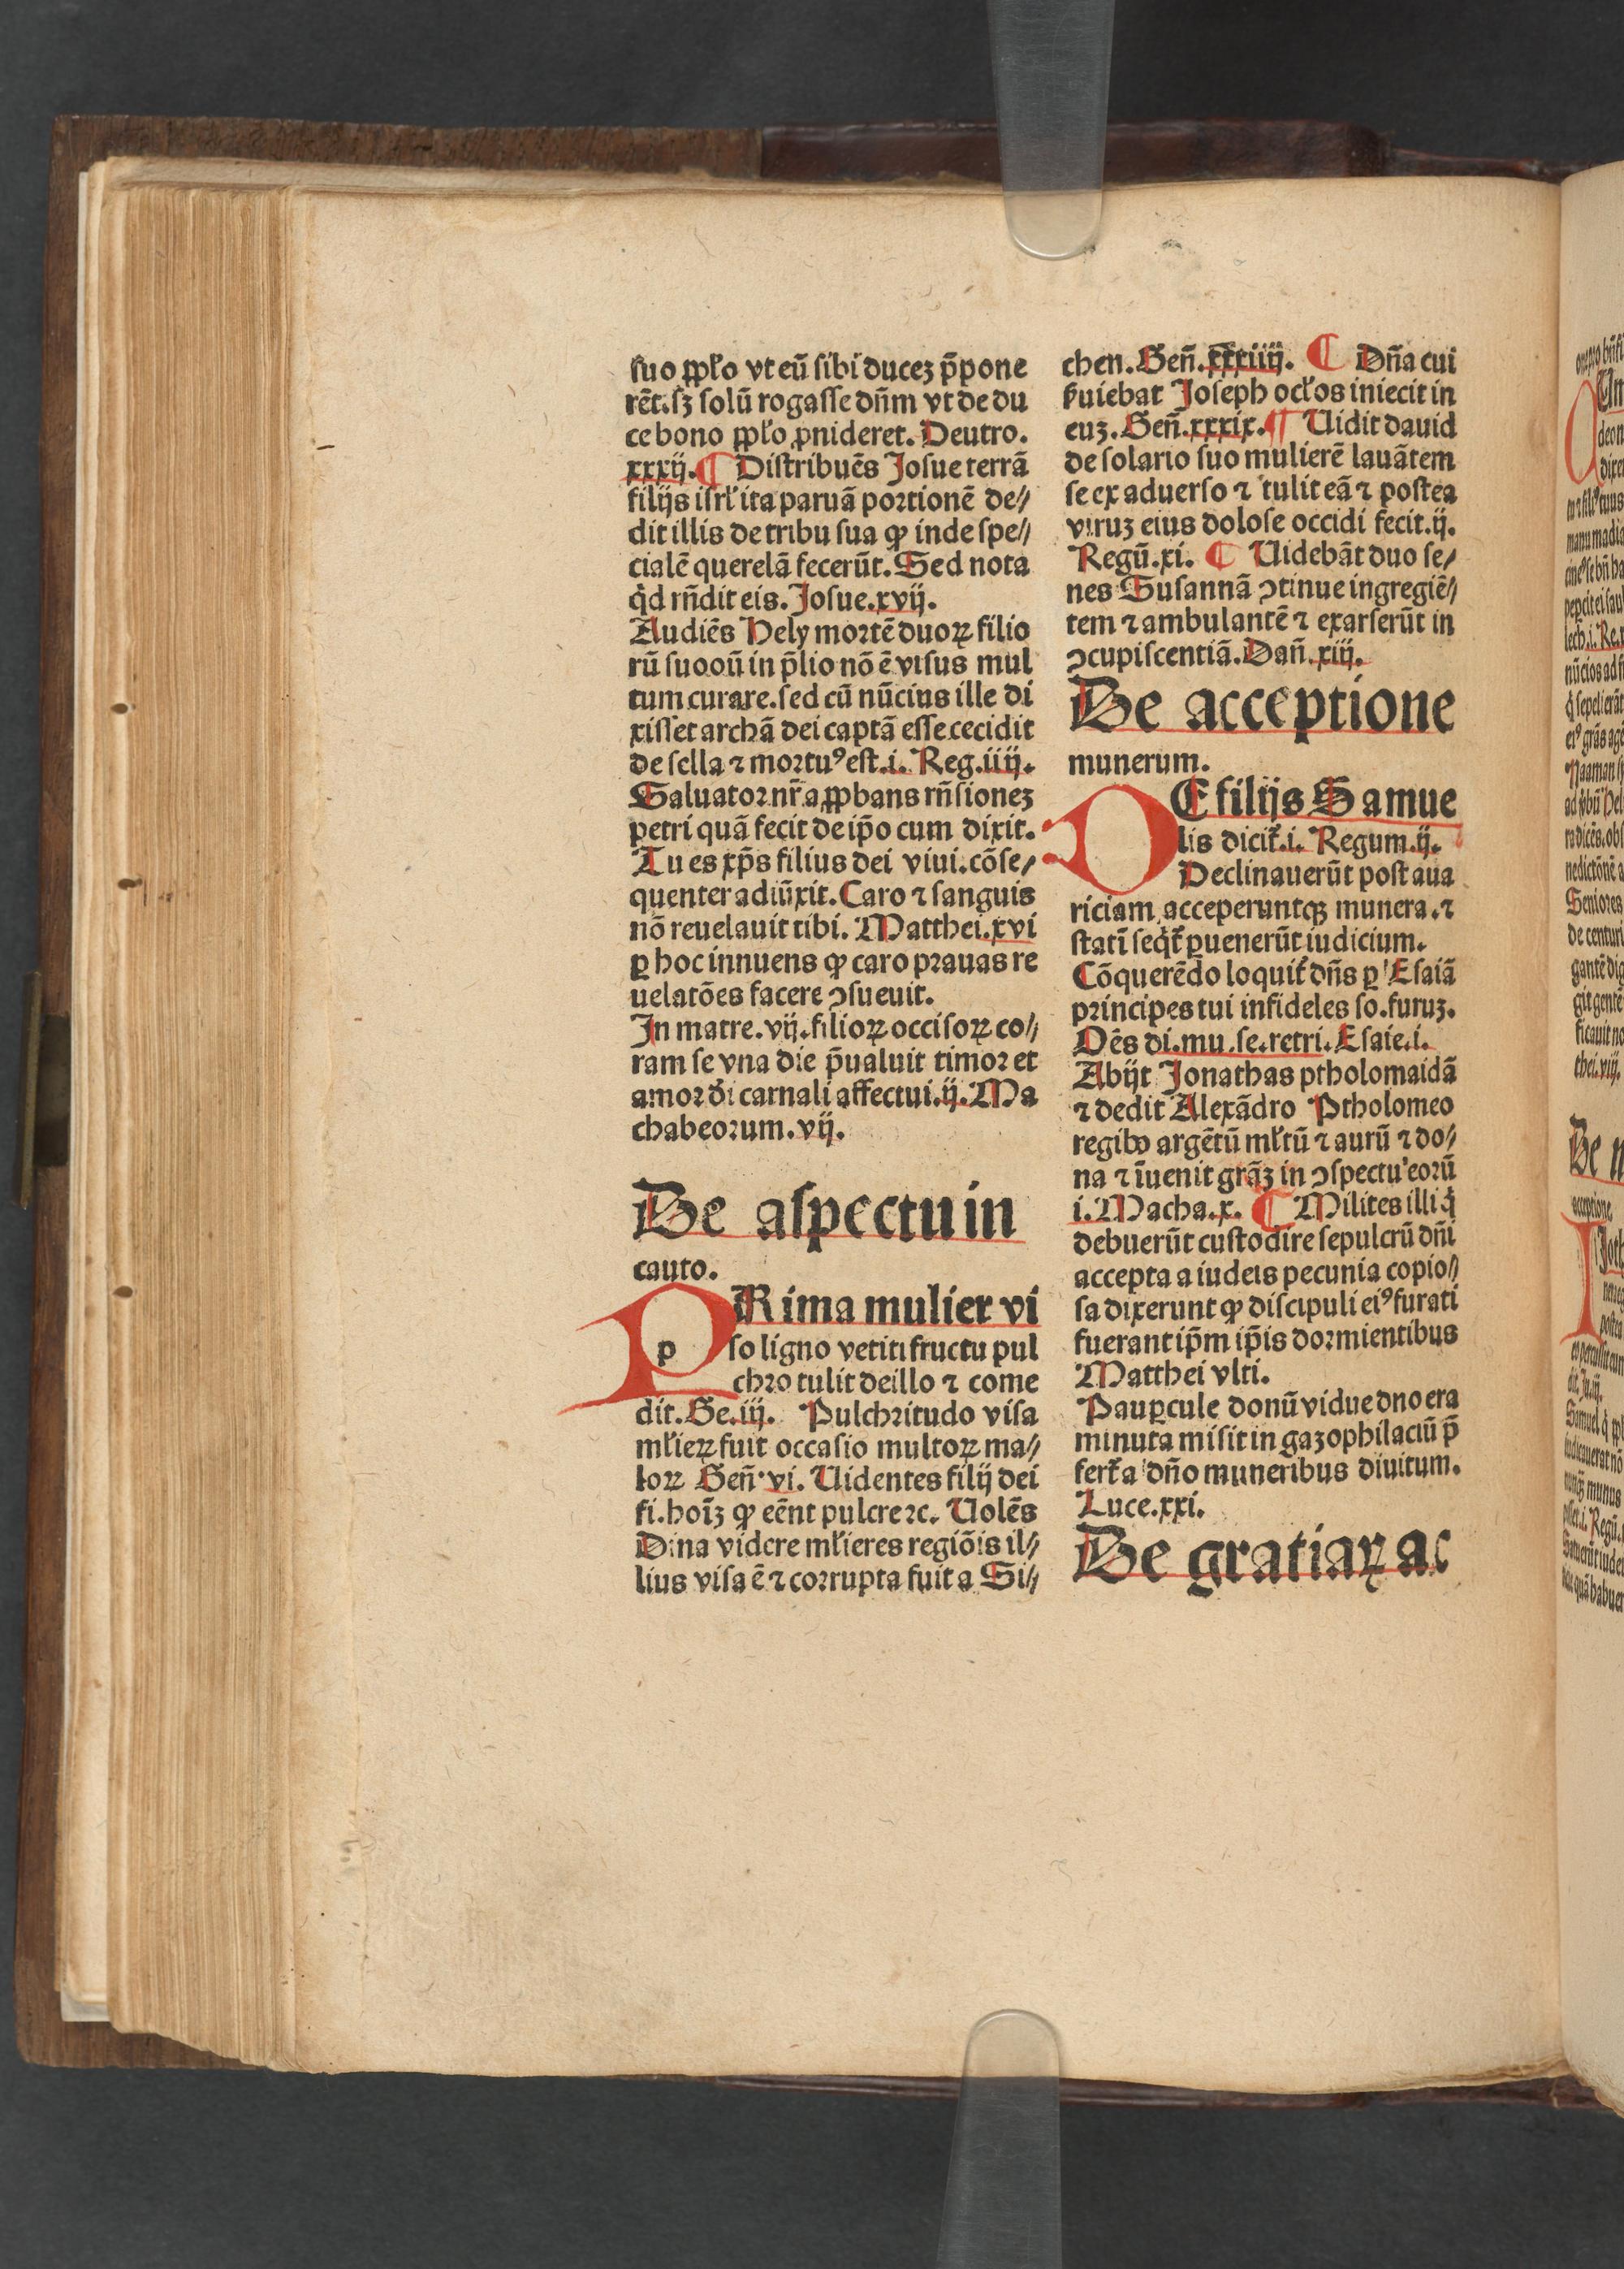 suo pp̄lo vt eū sibi ducez p̄pone
rēt. sz solū rogasse dn̄m vt de du
ce bono pp̄lo ꝓnideret. Deutro.
xxxij. ¶ Distribuēs Josue terrā
filijs isrl̄ ita paruā portionē de//
dit illis de tribu sua ꝙ inde spe//
cialē querelā fecerūt. Sed nota
qd̄ rn̄dit eis. Josue. xvij.
Audiēs Hely mortē duoꝝ filio
rū suoꝛū in p̄lio nō ē visus mul
tum curare. sed cū nūcius ille di
xisset archā dei captā esse cecidit
de sella ⁊ mortuꝰ est. i. Reg. iiij.
Saluator nr̄ aꝓpbans rn̄sionez
petri quā fecit de ip̄o cum dixit.
Tu es xp̄s filius dei viui. cōse/
quenter adiūxit. Caro ⁊ sanguis
nō reuelauit tibi. Matthei. xvi
ꝑ hoc innuens ꝙ caro prauas re
uelatōes facere ꝯsueuit.
In matre. vij. filioꝝ occisoꝝ co//
ram se vna die p̄ualuit timor et
amor di carnali affectui. ij. Ma
chabeorum. vij.
De aspectu in
cauto.
PRima mulier vi
so ligno vetiti fructu pul
chro tulit de illo ⁊ come
dit. Ge. iij. Pulchritudo visa
ml̄ieꝝ fuit occasio multoꝝ ma//
loꝝ Gen̄. vi. Uidentes filij dei
fi. hoīz ꝙ eēnt pulcre ⁊c. Uolēs
Dina videre ml̄ieres regiōis il//
lius visa ē ⁊ corrupta fuit a Si//
chen. Gen̄. xxxiiij. ¶ Dn̄a cui
s̄uiebat Joseph ocl̄os iniecit in
euz. Gen̄. xxxix. ¶ Uidit dauid
de solario suo mulierē lauātem
se ex aduerso ⁊ tulit eā ⁊ postea
viruz eius dolose occidi fecit. ij.
Regū. xi. ¶ Uidebāt duo se/
nes Susannā ꝯtinue ingregiē//
tem ⁊ ambulantē ⁊ exarserūt in
ꝯcupiscentiā. Dan̄. xiij.
De acceptione
munerum.
DE filijs Samue
lis dicit̄. i. Regum. ij.
Declinauerūt post aua
riciam acceperuntqꝫ munera. ⁊
statī seqt̄ ꝑuenerūt iudicium.
Cōquerēdo loquit̄ dn̄s ꝑ Esaiā
principes tui infideles so. furuz.
Oēs di. mu. se. retri. Esaie. i.
Abijt Jonathas ptholomaidā
⁊ dedit Alexādro Ptholomeo
regibꝰ argētū ml̄tū ⁊ aurū ⁊ do//
na ⁊ īuenit grāz in ꝯspectu eorū
i. Macha. x. ¶ Milites illi q̄
debuerūt custodire sepulcrū dn̄i
accepta a iudeis pecunia copio//
sa dixerunt ꝙ discipuli eiꝰ furati
fuerant ip̄m ip̄is dormientibus
Matthei vlti.
Pauꝑcule donū vidue dno era
minuta misit in gazophilaciū p̄
fert̄ a dn̄o muneribus diuitum.
Luce. xxi.
De gratiaꝝ ac